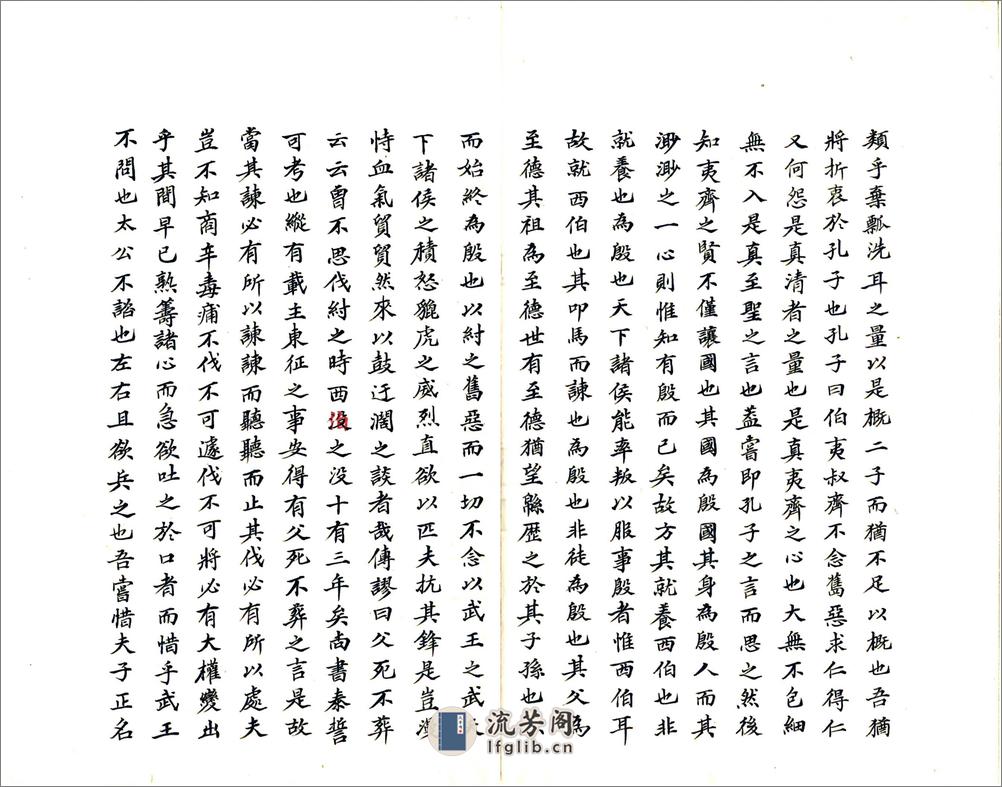 類乎棄瓢洗耳之量以是概二子而猶不足以概也吾猶
將折衷於孔子也孔子曰伯夷叔齊不念舊惡求仁得仁
又何怨是真清者之量也是真夷齊之心也大無不包細
無不入是真至聖之言也蓋嘗即孔子之言而思之然後
知夷齊之賢不僅讓國也其國為殷國其身為殷人而其
渺渺之一心則惟知有殷而已矣故方其就養西伯也非
就養也為殷也天下諸侯能率叛以服事殷者惟西伯耳
故就西伯也其叩馬而諫也為殷也非徒為殷也其父為
至德其祖為至德世有至德猶望緜歷之於其子孫也
而始終為殷也以紂之舊惡而一切不念以武王之武
下諸侯之積怒貔虎之威烈直欲以匹夫抗其鋒是豈
恃血氣貿貿然來以鼓迂濶之談者哉傳謬曰父死不葬
云云曾不思伐紂之時西伯之沒十有三年矣尚書泰誓
可考也縱有載主東征之事安得有父死不葬之言是故
當其諫必有所以諫諫而聽聽而止其伐必有所以處夫
豈不知商辛毒痡不伐不可遽伐不可將必有大權變出
乎其間早已熟籌諸心而急欲吐之於口者而惜乎武王
不問也太公不詒也左右且欲兵之也吾嘗惜夫子正名
流芳阁
lfglib.cn